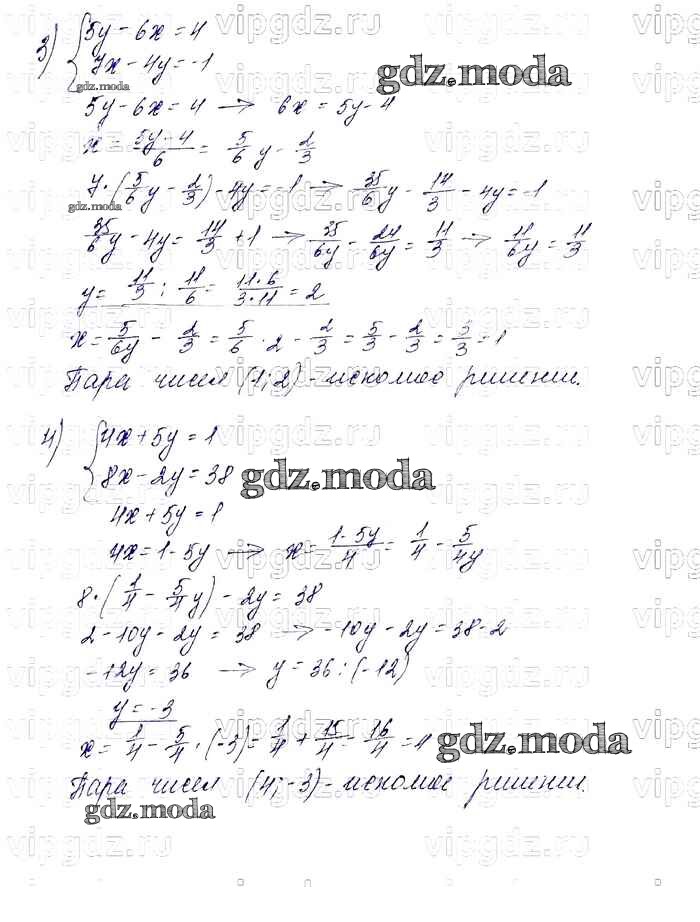 3) { 5y - 6x = 4
7x - 4y = -1
gdz.moda
gdz.moda
5y - 6x = 4 → 6x = 5y - 4
x = (5y - 4)/6 = 5/6 y - 2/3
7·(5/6 y - 2/3) - 4y = -1 → 35/6 y - 14/3 - 4y = -1
gdz.moda
35/6 y - 4y = 14/3 + 1 → 35/6y - 24/6y = 11/3 → 11/6y = 11/3
y = 11/3 : 11/6 = 11·6/3·11 = 2
x = 5/6y - 2/3 = 5/6 · 2 - 2/3 = 5/3 - 2/3 = 3/3 = 1
Пара чисел (1; 2) - искомое решение.
4) { 4x + 5y = 1
8x - 2y = 38
gdz.moda
4x + 5y = 1
4x = 1 - 5y → x = (1 - 5y)/4 = 1/4 - 5/4y
8·(1/4 - 5/4 y) - 2y = 38
2 - 10y - 2y = 38 → -10y - 2y = 38 - 2
-12y = 36 → y = 36 : (-12)
y = -3
x = 1/4 - 5/4 · (-3) = 1/4 + 15/4 = 16/4 = 4
gdz.moda
Пара чисел (4; -3) - искомое решение.
gdz.moda